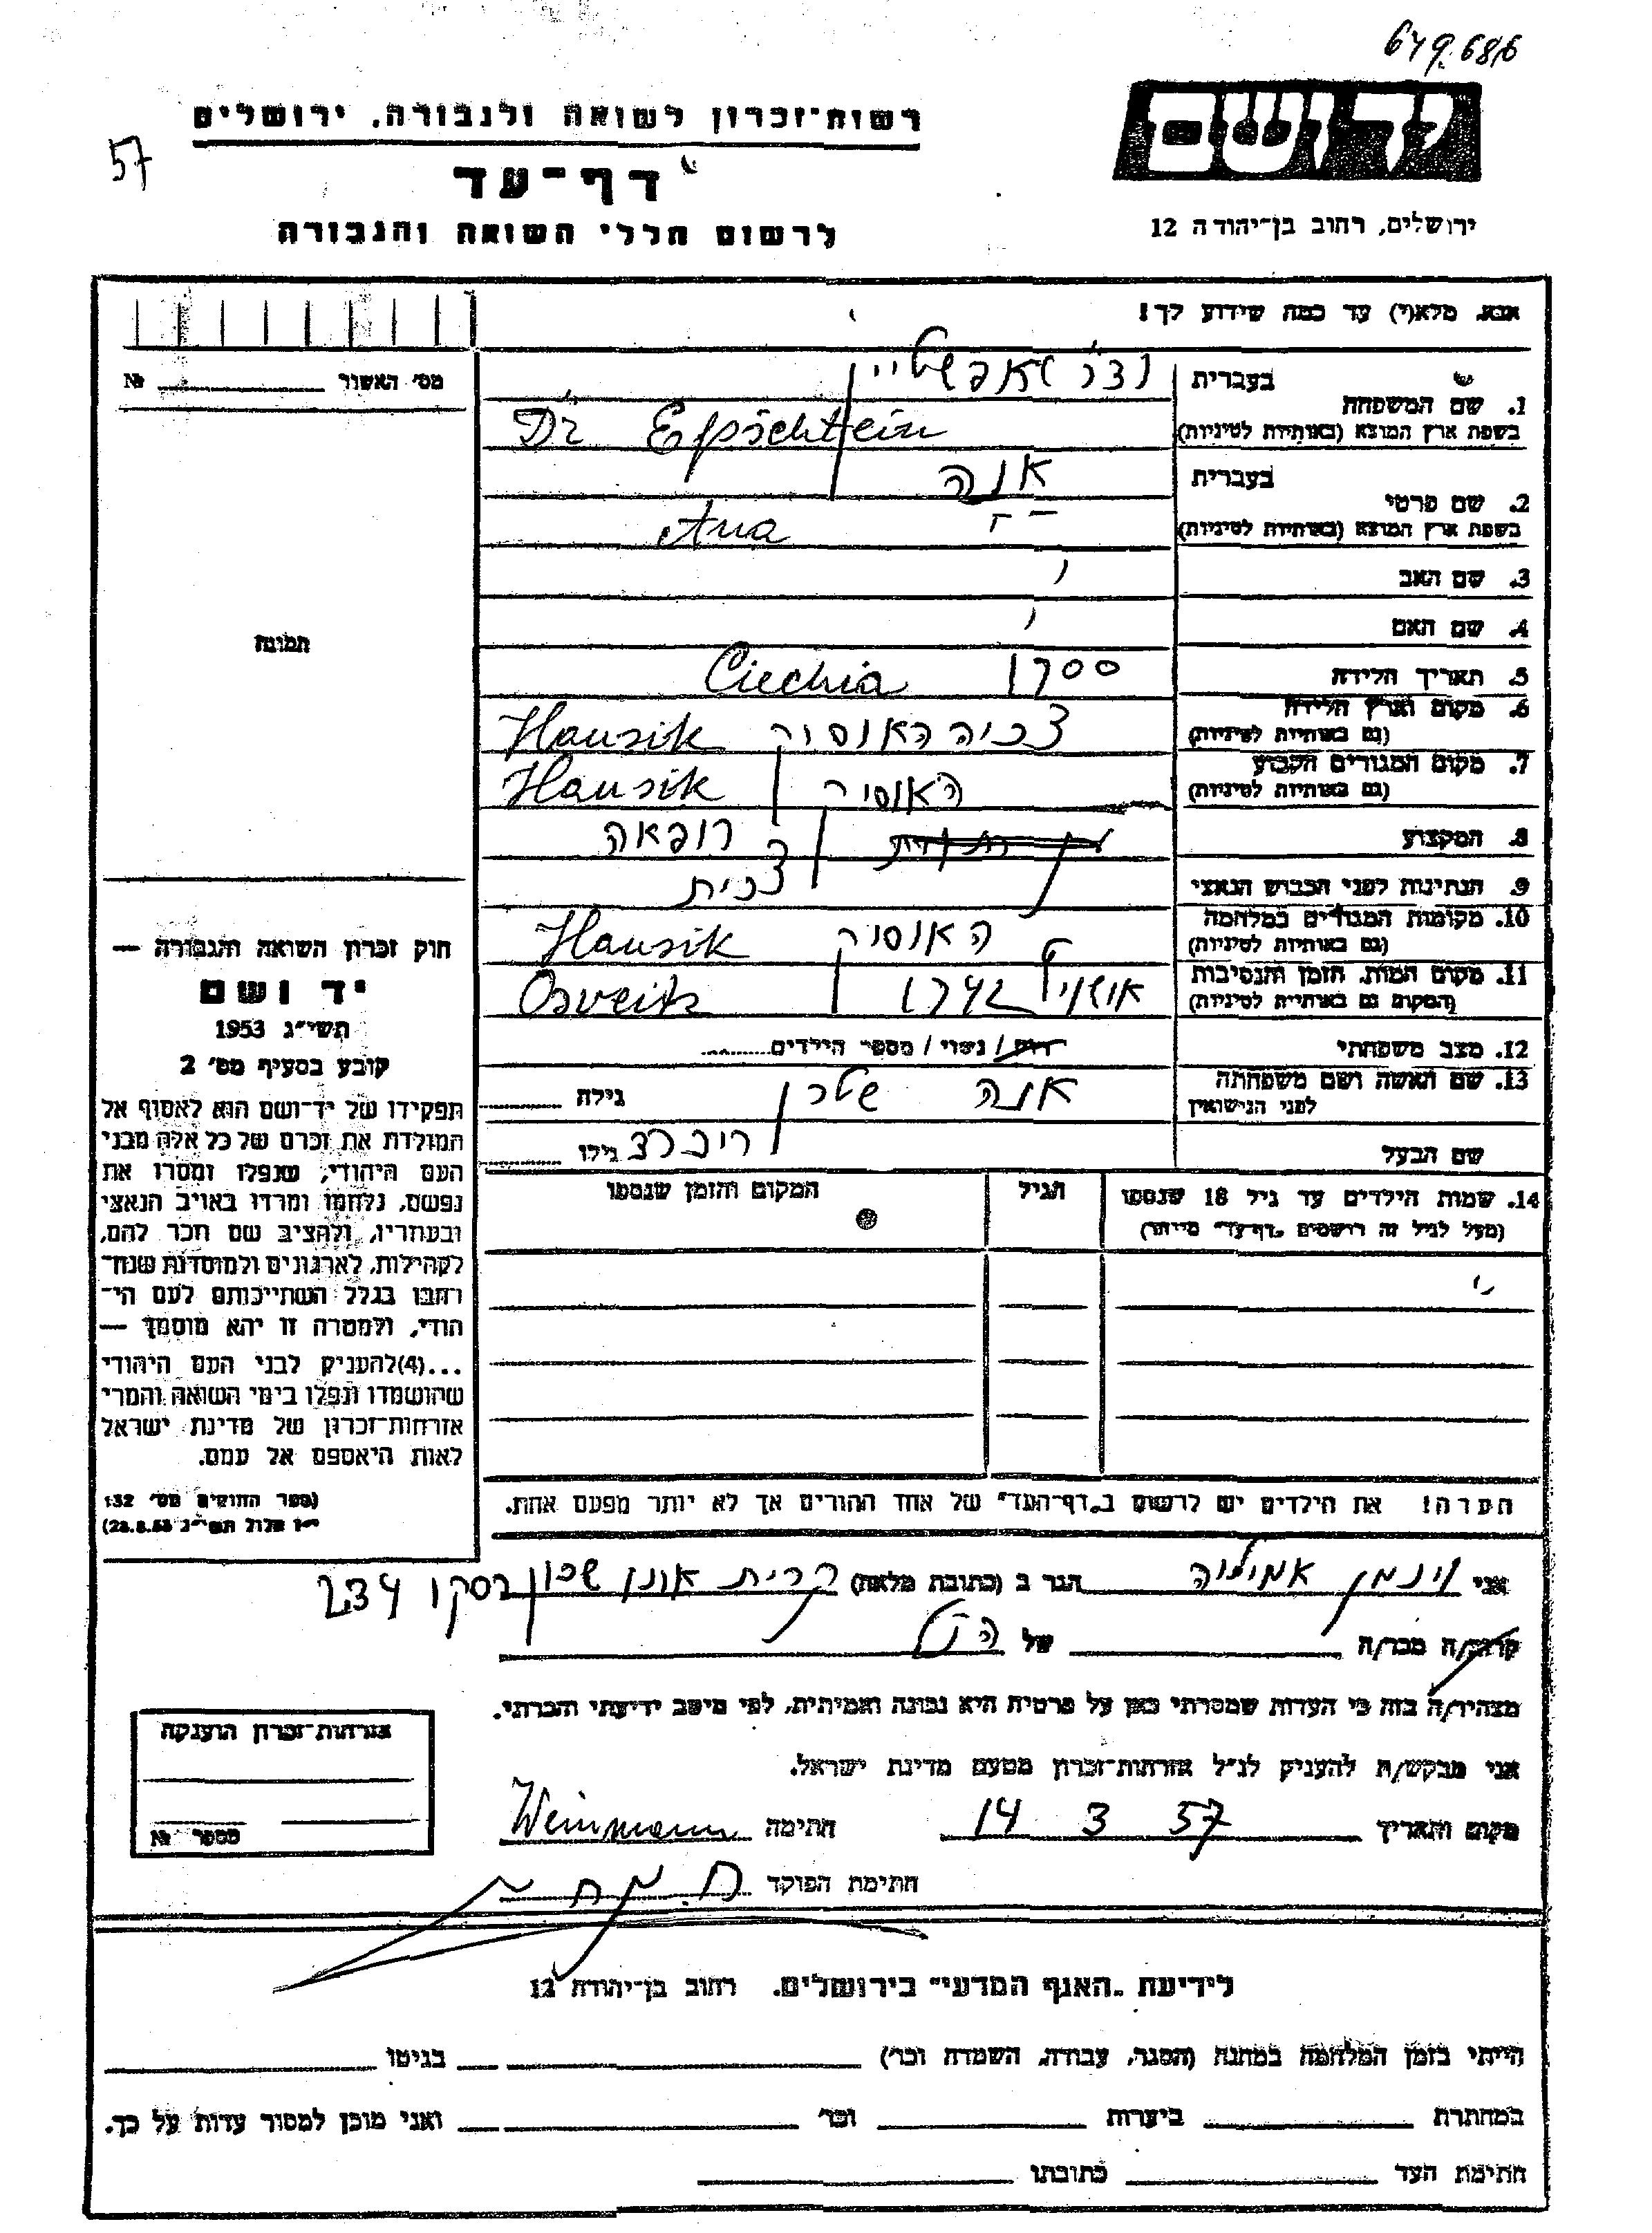 679.686
57
רשות־זכרון לשואה ולגבורה, ירושלים
דף־עד
לרשום חללי השואה והגבורה
יד ושם
ירושלים, רחוב בן־יהודה 12
אנא, מלא(י) עד כמה שידוע לך!
מס' האשור № 
1. שם המשפחה
בעברית
בשפת ארץ המוצא (באותיות לטיניות)
Dr Epschtein
2. שם פרטי
בעברית אנה
בשפת ארץ המוצא (באותיות לטיניות) Ana
3. שם האב
4. שם האם
5. תאריך הלידה 1900 Ciechia
6. מקום וארץ הלידה
(גם באותיות לטיניות) צכיה האוסיק Hausik
7. מקום המגורים הקבוע
(גם באותיות לטיניות) האוסיק Hausik
8. המקצוע רופאה
9. הנתינות לפני הכבוש הנאצי צכית
10. מקומות המגורים במלחמה
(גם באותיות לטיניות) האוסיק Hausik
11. מקום המות, הזמן והנסיבות
(המקום גם באותיות לטיניות) 1942 Osveitz
12. מצב משפחתי רווק / נשוי / מספר הילדים
13. שם האשה ושם משפחתה
לפני הנישואין אנה שטרן גילה
שם הבעל ריכרד גילו
14. שמות הילדים עד גיל 18 שנספו
(מעל לגיל זה רושמים "דף־עד" מיוחד)
הגיל
המקום והזמן שנספו
הערה! את הילדים יש לרשום ב"דף־העד" של אחד ההורים אך לא יותר מפעם אחת.
תמונה
חוק זכרון השואה והגבורה —
יד ושם
תשי"ג 1953
קובע בסעיף מס' 2
תפקידו של יד־ושם הוא לאסוף אל
המולדת את זכרם של כל אלה מבני
העם היהודי, שנפלו ומסרו את
נפשם, נלחמו ומרדו באויב הנאצי
ובעוזריו, ולהציב שם וזכר להם,
לקהילות, לארגונים ולמוסדות שנח־
רבו בגלל השתייכותם לעם הי־
הודי, ולמטרה זו יהא מוסמך —
...(4)להעניק לבני העם היהודי
שהושמדו ונפלו בימי השואה והמרי
אזרחות־זכרון של מדינת ישראל
לאות היאספם אל עמם.
(ספר החוקים מס' 132
י"ז אלול תשי"ג 28.8.53)
אני וינמן אמיליה הגר ב (כתובת מלאה) קרית אונו שכון רסקו 234
קרוב/ה מכר/ה של הנ"ל
מצהיר/ה בזה כי העדות שמסרתי כאן על פרטיה היא נכונה ואמיתית, לפי מיטב ידיעתי והכרתי.
אני מבקש/ת להעניק לנ"ל אזרחות־זכרון מטעם מדינת ישראל.
מקום ותאריך 14 3 57 חתימה Weinmann
חתימת הפוקד
אזרחות־זכרון הוענקה
מספר №
לידיעת "האגף המדעי" בירושלים, רחוב בן־יהודה 12
הייתי בזמן המלחמה במחנה (הסגר, עבודה, השמדה וכו') בגיטו
במחתרת ביערות וכו' ואני מוכן למסור עדות על כך.
חתימת העד כתובתו